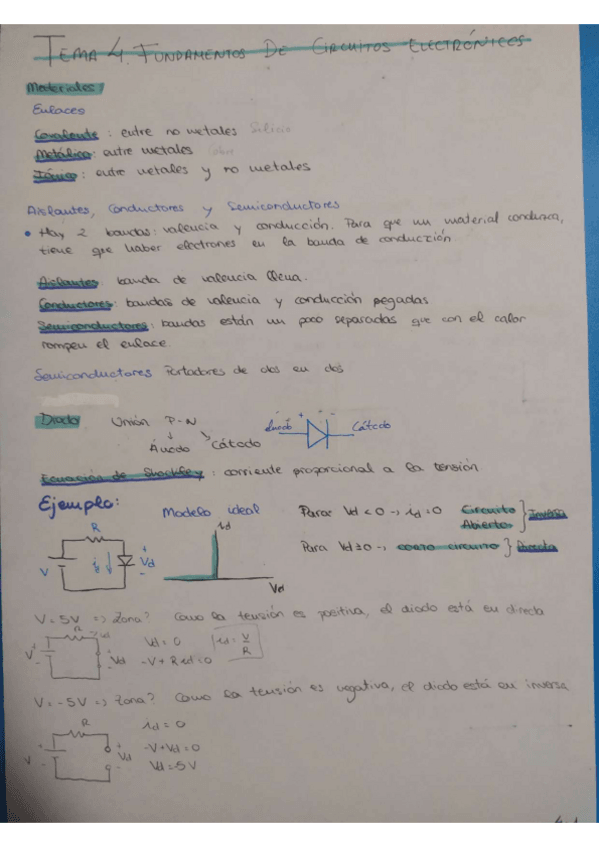 TEMA 4. FUNDAMENTOS DE CIRCUITOS ELECTRÓNICOS
Materiales
Enlaces
Covalente: entre no metales Silicio
Metálico: entre metales Cobre
Iónico: entre metales y no metales
Aislantes, Conductores y Semiconductores
• Hay 2 bandas: valencia y conducción. Para que un material conduzca,
tiene que haber electrones en la banda de conducción.
Aislantes: banda de valencia llena.
Conductores: bandas de valencia y conducción pegadas
Semiconductores: bandas están un poco separadas que con el calor
rompen el enlace.
Semiconductores Portadores de dos en dos
Diodo Unión P-N
Ánodo Cátodo
Ánodo + - Cátodo
Ecuación de Shockley: corriente proporcional a la tensión
Ejemplo: Modelo ideal
R
V
id
+
Vd
-
id
Vd
Para Vd < 0 -> id = 0 Circuito Abierto } Inversa
Para Vd ≥ 0 -> corto circuito } Directa
V = 5V => Zona? Como la tensión es positiva, el diodo está en directa
R
V
+
-
id
Vd
Vd = 0
id = V/R
-V + R·id = 0
V = -5V => Zona? Como la tensión es negativa, el diodo está en inversa
R
V
+
-
+
Vd
-
id = 0
-V + Vd = 0
Vd = -5V